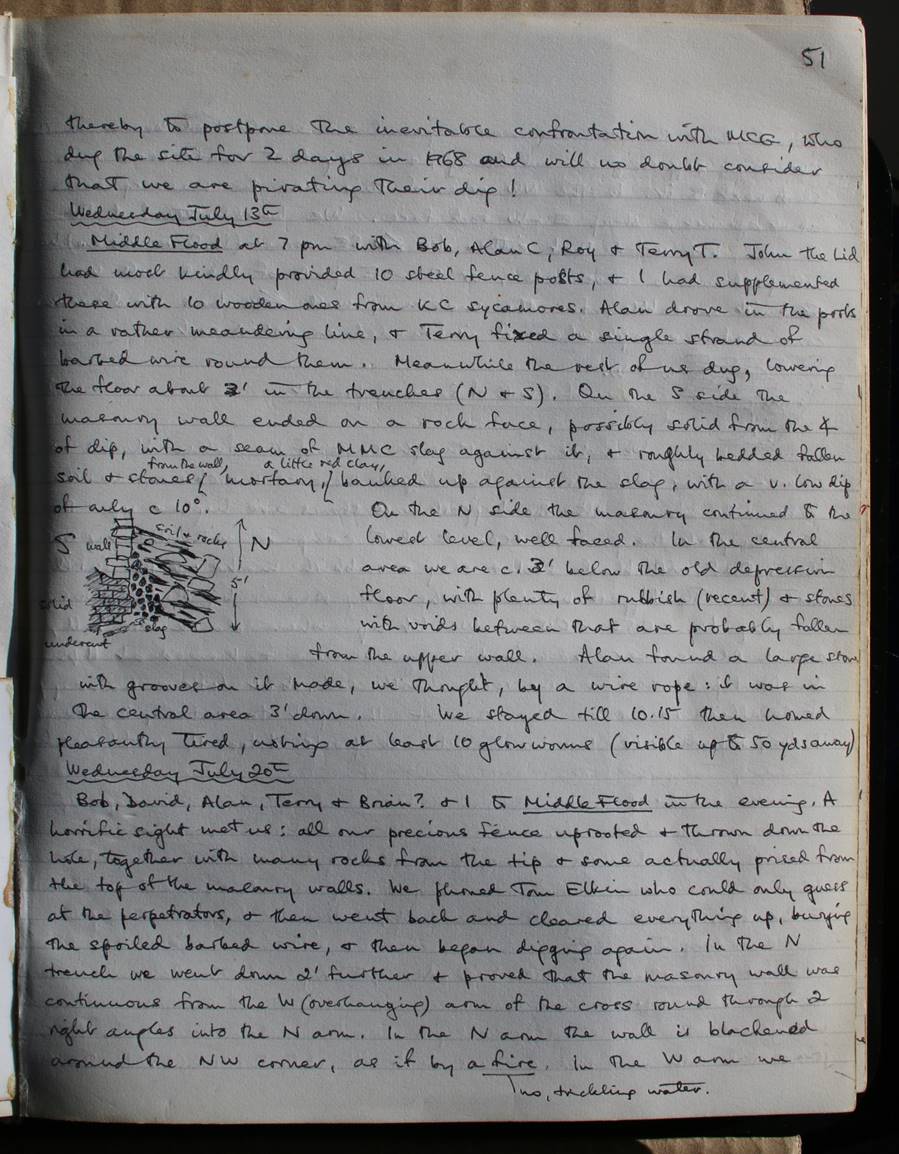 51
thereby to postpone the inevitable confrontation with MCG, who
dug the site for 2 days in 1968 and will no doubt consider
that we are pirating their dig!
Wednesday July 13th
Middle Flood at 7 pm with Bob, Alan C, Roy & Terry T. John the Lid
had most kindly provided 10 steel fence posts, & I had supplemented
these with 10 wooden ones from KC sycamores. Alan drove in the posts
in a rather meandering line, & Terry fixed a single strand of
barbed wire round them. Meanwhile the rest of us dug, lowering
the floor about 3' in the trenches (N & S). On the S side the
masonry wall ended on a rock face, possibly solid from the
of dip, with a seam of MMC slag against it, & roughly bedded fallen
from the wall, a little red clay,
soil & stones, mortary, banked up against the slag, with a v. low dip
of only c 10°. On the N side the masonry continued to the
S wall soil & rocks N lowest level, well faced. In the central
area we are c. 3' below the old depression
5'
solid floor, with plenty of rubbish (recent) & stones
slag with voids between that are probably fallen
undercut
from the upper wall. Alan found a large stone
with grooves on it made, we thought, by a wire rope: it was in
the central area 3' down. We stayed till 10.15 then homed
pleasantly tired, noting at least 10 glow worms (visible up to 50 yds away)
Wednesday July 20th
Bob, David, Alan, Terry & Brian? & I to Middle Flood in the evening. A
horrific sight met us: all our precious fence uprooted & thrown down the
hole, together with many rocks from the tip & some actually prised from
the top of the masonry walls. We phoned Tom Elkin who could only guess
at the perpetrators, & then went back and cleared everything up, burying
the spoiled barbed wire, & then began digging again. In the N
trench we went down 2' further & proved that the masonry wall was
continuous from the W (overhanging) arm of the cross round through 2
right angles into the N arm. In the N arm the wall is blackened
around the NW corner, as if by a fire. In the W arm we
no, trickling water.